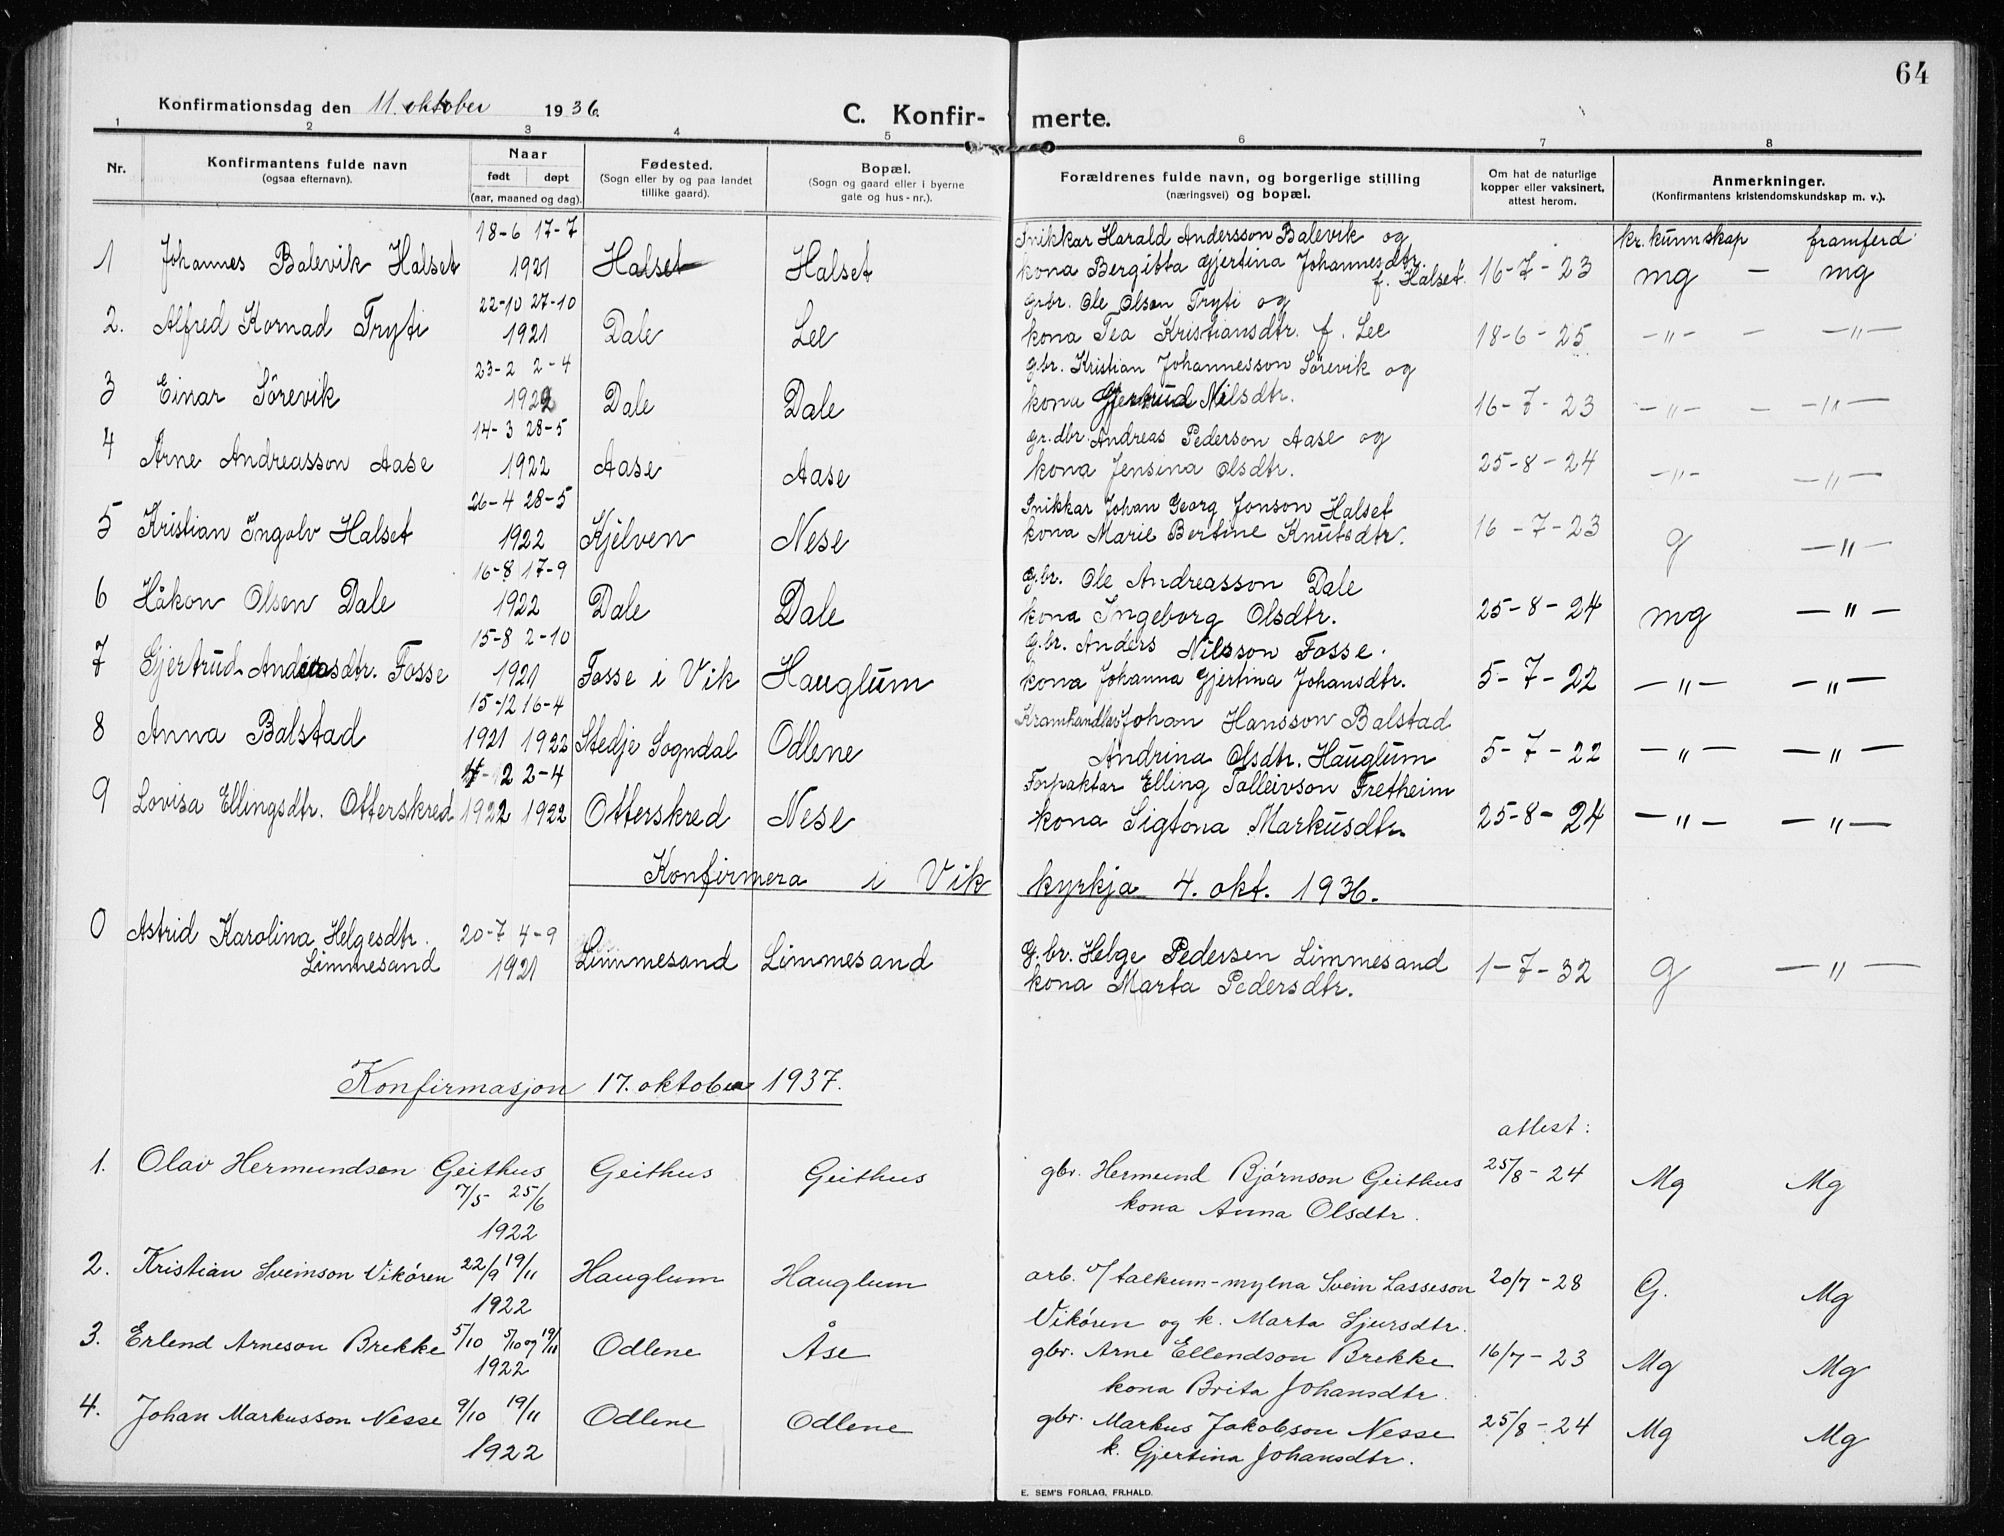 64
Konfirmationsdag den 11. oktober 1936. C. Konfir- merte.
1 2 3 4 5 6 7 8
Nr.
Konfirmantens fulde navn
(ogsaa efternavn).
Naar
født døpt
(aar, maaned og dag).
Fødested.
(Sogn eller by og paa landet
tillike gaard).
Bopæl.
(Sogn og gaard eller i byerne
gate og hus-nr.).
Forældrenes fulde navn, og borgerlige stilling
(næringsvei) og bopæl.
Om hat de naturlige
kopper eller vaksinert,
attest herom.
Anmerkninger.
(Konfirmantens kristendomskundskap m. v.).
18-6 17-7 Snikkar Harald Andersson Balevik og kr. kunnskap framferd
1 Johannes Balevik Halset 1921 Halset Halset kona Bergitta Gjertina Johannesdtr. f. Halset. 16-7-23 mg — mg
22-10 27-10 Gbr. Ole Olsen Tryti og
2. Alfred Kornad Tryti 1921 Dale Lee kona Tea Kristiansdtr. f. Lee 18-6-25 —„— — —„—
23-2 2-4 Gbr. Kristian Johannesson Sörevik og
3 Einar Sörevik 1922 Dale Dale kona Gjertrud Nilsdtr. 16-7-23 —„— — —„—
14-3 28-5 Gr.dbr. Andreas Pederson Aase og
4 Arne Andreasson Aase 1922 Aase Aase kona Jensina Olsdtr. 25-8-24 —„— —„—
26-4 28-5 Snikkar Johan Georg Jonson Halset
5 Kristian Ingolv Halset 1922 Kjelven Nese kona Marie Bertine Knutsdtr. 16-7-23 g —„—
16-8 17-9 G.br. Ole Andreasson Dale
6 Håkon Olsen Dale 1922 Dale Dale kona Ingeborg Olsdtr. 25-8-24 mg —„—
15-8 2-10 G.br. Anders Nilsson Fosse.
7 Gjertrud Andersdtr. Fosse 1921 Fosse i Vik Hauglum kona Johanna Gjertina Johansdtr. 5-7-22 —„— —„—
15-12 16-4 Kramhandlar Johan Hansson Balstad
8 Anna Balstad 1921 1922 Stedje Sogndal Odlene Andrina Olsdtr. Hauglum 5-7-22 —„— —„—
4-2 2-4 Forpaktar Elling Tolleivson Fretheim
9 Lovisa Ellingsdtr. Otterskred 1922 1922 Otterskred Nese kona Sigtona Markusdtr. 25-8-24 —„— —„—
Konfirmera i Vik kyrkja 4. okt. 1936.
0 Astrid Karolina Helgesdtr. 20-7 4-9 G.br. Helge Pedersen Limmesand
Limmesand 1921 Limmesand Limmesand kona Marta Pedersdtr. 1-7-32 g —„—
Konfirmasjon 17. oktober 1937.
attest:
1. Olav Hermundson Geithus Geithus Geithus gbr. Hermund Bjørnson Geithus 25/8-24 Mg Mg
7/5 25/6 kona Anna Olsdtr.
1922
2. Kristian Sveinson Vikören 22/9 19/11 Hauglum Hauglum arb. v/ talkum-mylna Svein Lasseson 20/7-28 G. Mg
1922 Vikören og k. Marta Sjursdtr.
3. Erlend Arneson Brekke 5/10 5/10 og 19/11 Odlene Åse gbr. Arne Ellendson Brekke 16/7-23 Mg Mg
1922 kona Brita Johansdtr.
4. Johan Markusson Nesse 9/10 19/11 Odlene Odlene gbr. Markus Jakobson Nesse 25/8-24 Mg Mg
1922 k. Gjertina Johansdtr.
E. SEM'S FORLAG, FR.HALD.